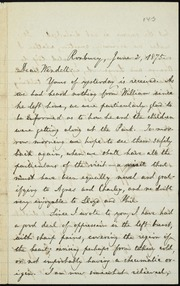 Roxbury, June 2, 1875.
Dear Wendell:
Yours of yesterday is received. As
we had heard nothing from William since
he left home, we are particularly glad to
be informed as to how he and the children
were getting along at the Park. To-mor-
row morning we hope to see them safely
back again, and we shall have all the
particulars of the visit – a visit that
must have been equally novel and grat-
ifying to Agnes and Charley, and no doubt
very enjoyable to Lloyd and Phil.
Since I wrote to you, I have had
a good deal of oppression in the left breast,
with sharp pains, covering the region of
the heart; arising perhaps from taking cold,
or not improbably having a rheumatic or-
igin. I am now somewhat relieved,